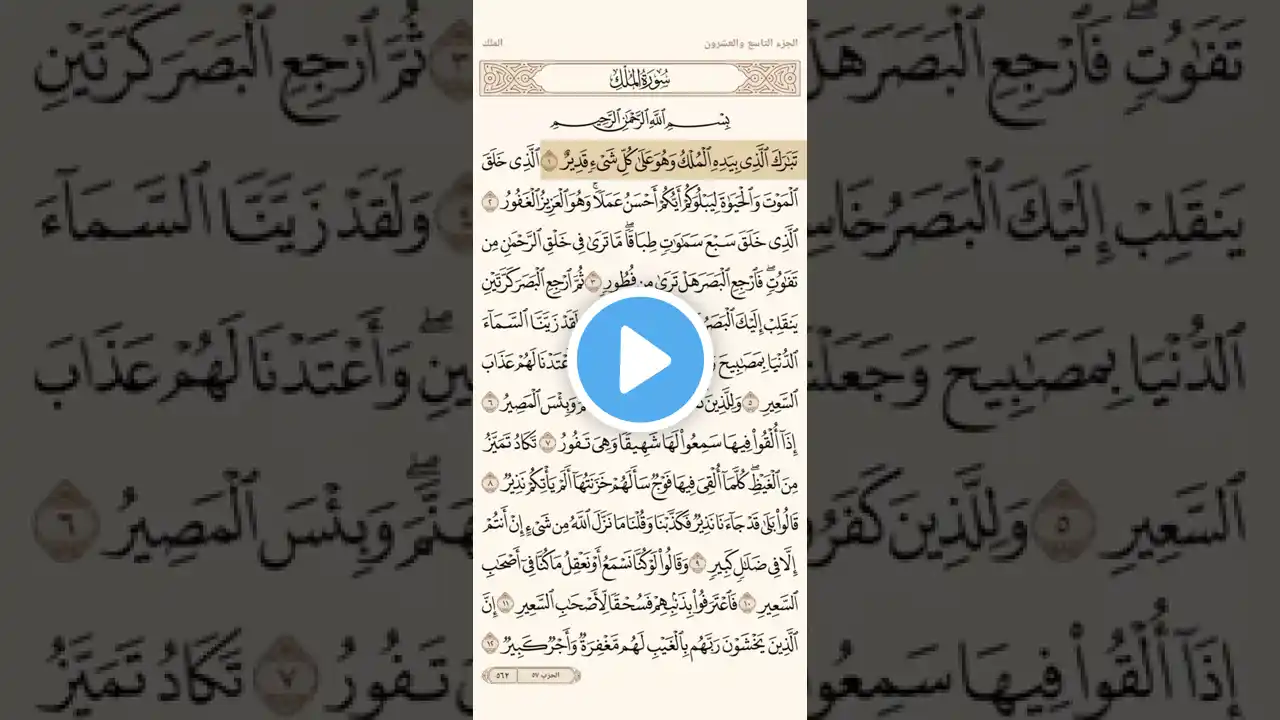 الجزء التاسع والعشرون الملك
سُورَةُ المُلْكِ
بِسْمِ ٱللَّهِ ٱلرَّحْمَٰنِ ٱلرَّحِيمِ
تَبَٰرَكَ ٱلَّذِى بِيَدِهِ ٱلْمُلْكُ وَهُوَ عَلَىٰ كُلِّ شَىْءٍ قَدِيرٌ ١ ٱلَّذِى خَلَقَ
ٱلْمَوْتَ وَٱلْحَيَوٰةَ لِيَبْلُوَكُمْ أَيُّكُمْ أَحْسَنُ عَمَلًا ۚ وَهُوَ ٱلْعَزِيزُ ٱلْغَفُورُ ٢
ٱلَّذِى خَلَقَ سَبْعَ سَمَٰوَٰتٍ طِبَاقًا ۖ مَّا تَرَىٰ فِى خَلْقِ ٱلرَّحْمَٰنِ مِن
تَفَٰوُتٍ ۖ فَٱرْجِعِ ٱلْبَصَرَ هَلْ تَرَىٰ مِن فُطُورٍ ٣ ثُمَّ ٱرْجِعِ ٱلْبَصَرَ كَرَّتَيْنِ
يَنقَلِبْ إِلَيْكَ ٱلْبَصَرُ لَقَدْ زَيَّنَّا ٱلسَّمَآءَ
ٱلدُّنْيَا بِمَصَٰبِيحَ أَعْتَدْنَا لَهُمْ عَذَابَ
ٱلسَّعِيرِ ٥ وَلِلَّذِينَ وَبِئْسَ ٱلْمَصِيرُ ٦
إِذَآ أُلْقُوا۟ فِيهَا سَمِعُوا۟ لَهَا شَهِيقًا وَهِىَ تَفُورُ ٧ تَكَادُ تَمَيَّزُ
مِنَ ٱلْغَيْظِ ۖ كُلَّمَآ أُلْقِىَ فِيهَا فَوْجٌ سَأَلَهُمْ خَزَنَتُهَآ أَلَمْ يَأْتِكُمْ نَذِيرٌ ٨
قَالُوا۟ بَلَىٰ قَدْ جَآءَنَا نَذِيرٌ فَكَذَّبْنَا وَقُلْنَا مَا نَزَّلَ ٱللَّهُ مِن شَىْءٍ إِنْ أَنتُمْ
إِلَّا فِى ضَلَٰلٍ كَبِيرٍ ٩ وَقَالُوا۟ لَوْ كُنَّا نَسْمَعُ أَوْ نَعْقِلُ مَا كُنَّا فِىٓ أَصْحَٰبِ
ٱلسَّعِيرِ ١٠ فَٱعْتَرَفُوا۟ بِذَنۢبِهِمْ فَسُحْقًا لِّأَصْحَٰبِ ٱلسَّعِيرِ ١١ إِنَّ
ٱلَّذِينَ يَخْشَوْنَ رَبَّهُم بِٱلْغَيْبِ لَهُم مَّغْفِرَةٌ وَأَجْرٌ كَبِيرٌ ١٢
الحزب ٥٧ ٥٦٢